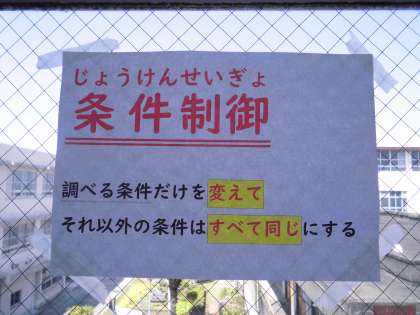 じょうけんせいぎょ
条件制御
調べる条件だけを変えて
それ以外の条件はすべて同じにする